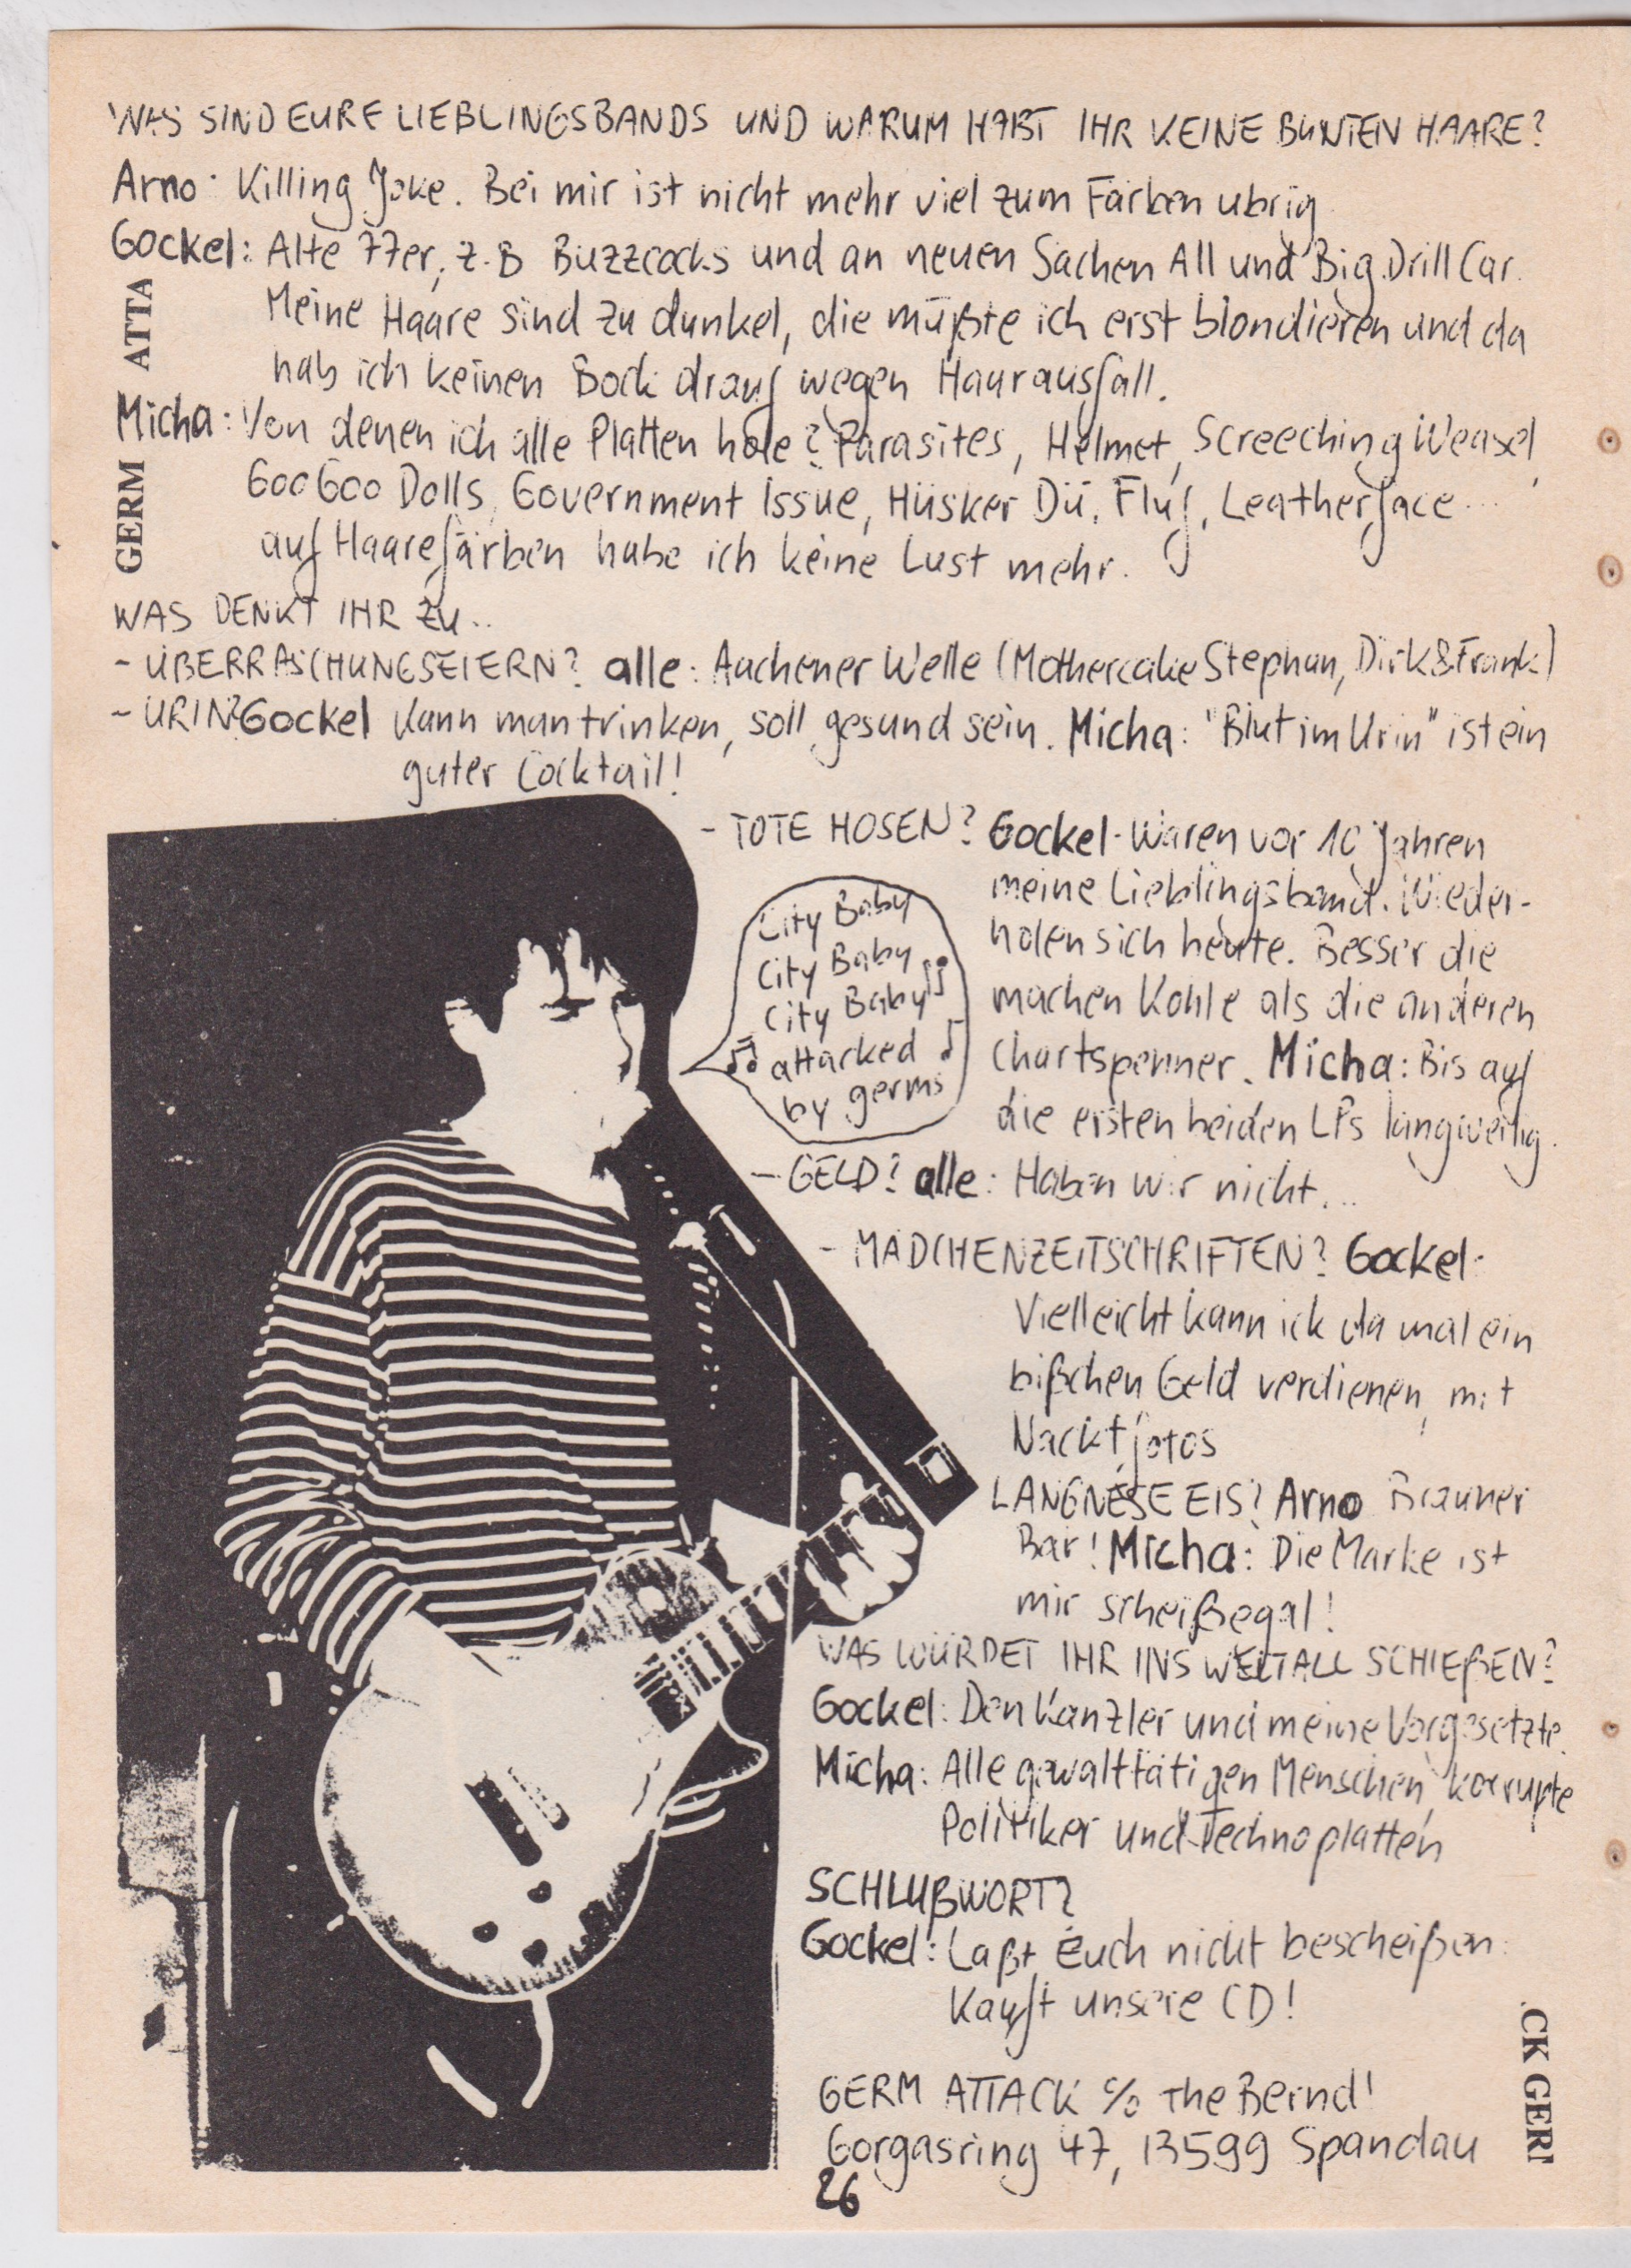 WAS SIND EURE LIEBLINGSBANDS UND WARUM HABT IHR KEINE BUNTEN HAARE?
Arno: Killing Joke. Bei mir ist nicht mehr viel zum Färben übrig.
Gockel: Alte 77er, z.B Buzzcocks und an neuen Sachen All und Big Drill Car.
Meine Haare sind zu dunkel, die müßte ich erst blondieren und da
hab ich keinen Bock drauf wegen Haarausfall.
Micha: Von denen ich alle Platten hole? Parasites, Helmet, Screeching Weasel,
Goo Goo Dolls, Government Issue, Hüsker Dü, Fluf, Leatherface...
auf Haarefärben habe ich keine Lust mehr.
GERM ATTA
WAS DENKT IHR ZU..
- ÜBERRASCHUNGSEIERN? alle: Aachener Welle (Mothercake Stephan, Dirk & Frank)
- URIN? Gockel Kann man trinken, soll gesund sein. Micha: "Blut im Urin" ist ein
guter Cocktail!
- TOTE HOSEN? Gockel: Waren vor 10 Jahren
meine Lieblingsband. Wieder-
holen sich heute. Besser die
machen Kohle als die anderen
Chartspenner. Micha: Bis auf
die ersten beiden LPs langweilig.
City Baby
City Baby
City Baby
attacked
by germs
- GELD? alle: Haben wir nicht...
- MÄDCHENZEITSCHRIFTEN? Gockel:
Vielleicht kann ick da mal ein
bißchen Geld verdienen, mit
Nacktfotos
LANGNESE EIS? Arno Brauner
Bär! Micha: Die Marke ist
mir scheißegal!
WAS WÜRDET IHR INS WELTALL SCHIEßEN?
Gockel: Den Kanzler und meine Vorgesetzte.
Micha: Alle gewalttätigen Menschen, korrupte
Politiker und Technoplatten
SCHLUßWORT?
Gockel: Laßt Euch nicht bescheißen:
Kauft unsere CD!
GERM ATTACK c/o The Bernd!
Gorgasring 47, 13599 Spandau
CK GERI
26